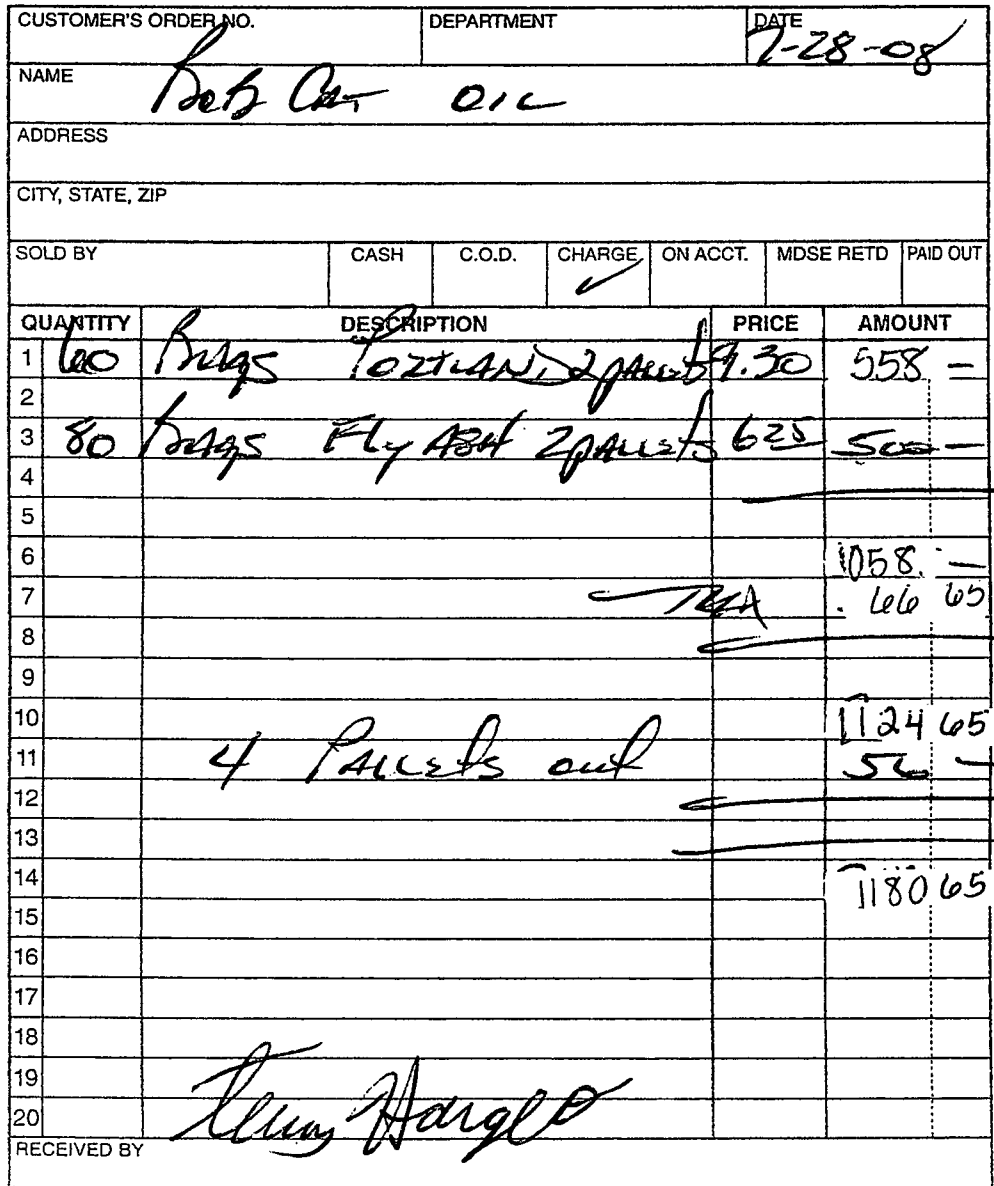 CUSTOMER'S ORDER NO. DEPARTMENT DATE 7-28-08
NAME Bob Cat OIL
ADDRESS
CITY, STATE, ZIP
SOLD BY CASH C.O.D. CHARGE ✓ ON ACCT. MDSE RETD PAID OUT
QUANTITY DESCRIPTION PRICE AMOUNT
1 60 BAGS PORTLAND 2 pallets 9.30 558 —
2
3 80 BAGS Fly ASH 2 pallets 6 25 500 —
4
5
6 1058. —
7 TAX 66 65
8
9
10 1124 65
11 4 PALLETS out 56 —
12
13
14 1180 65
15
16
17
18
19
20
RECEIVED BY